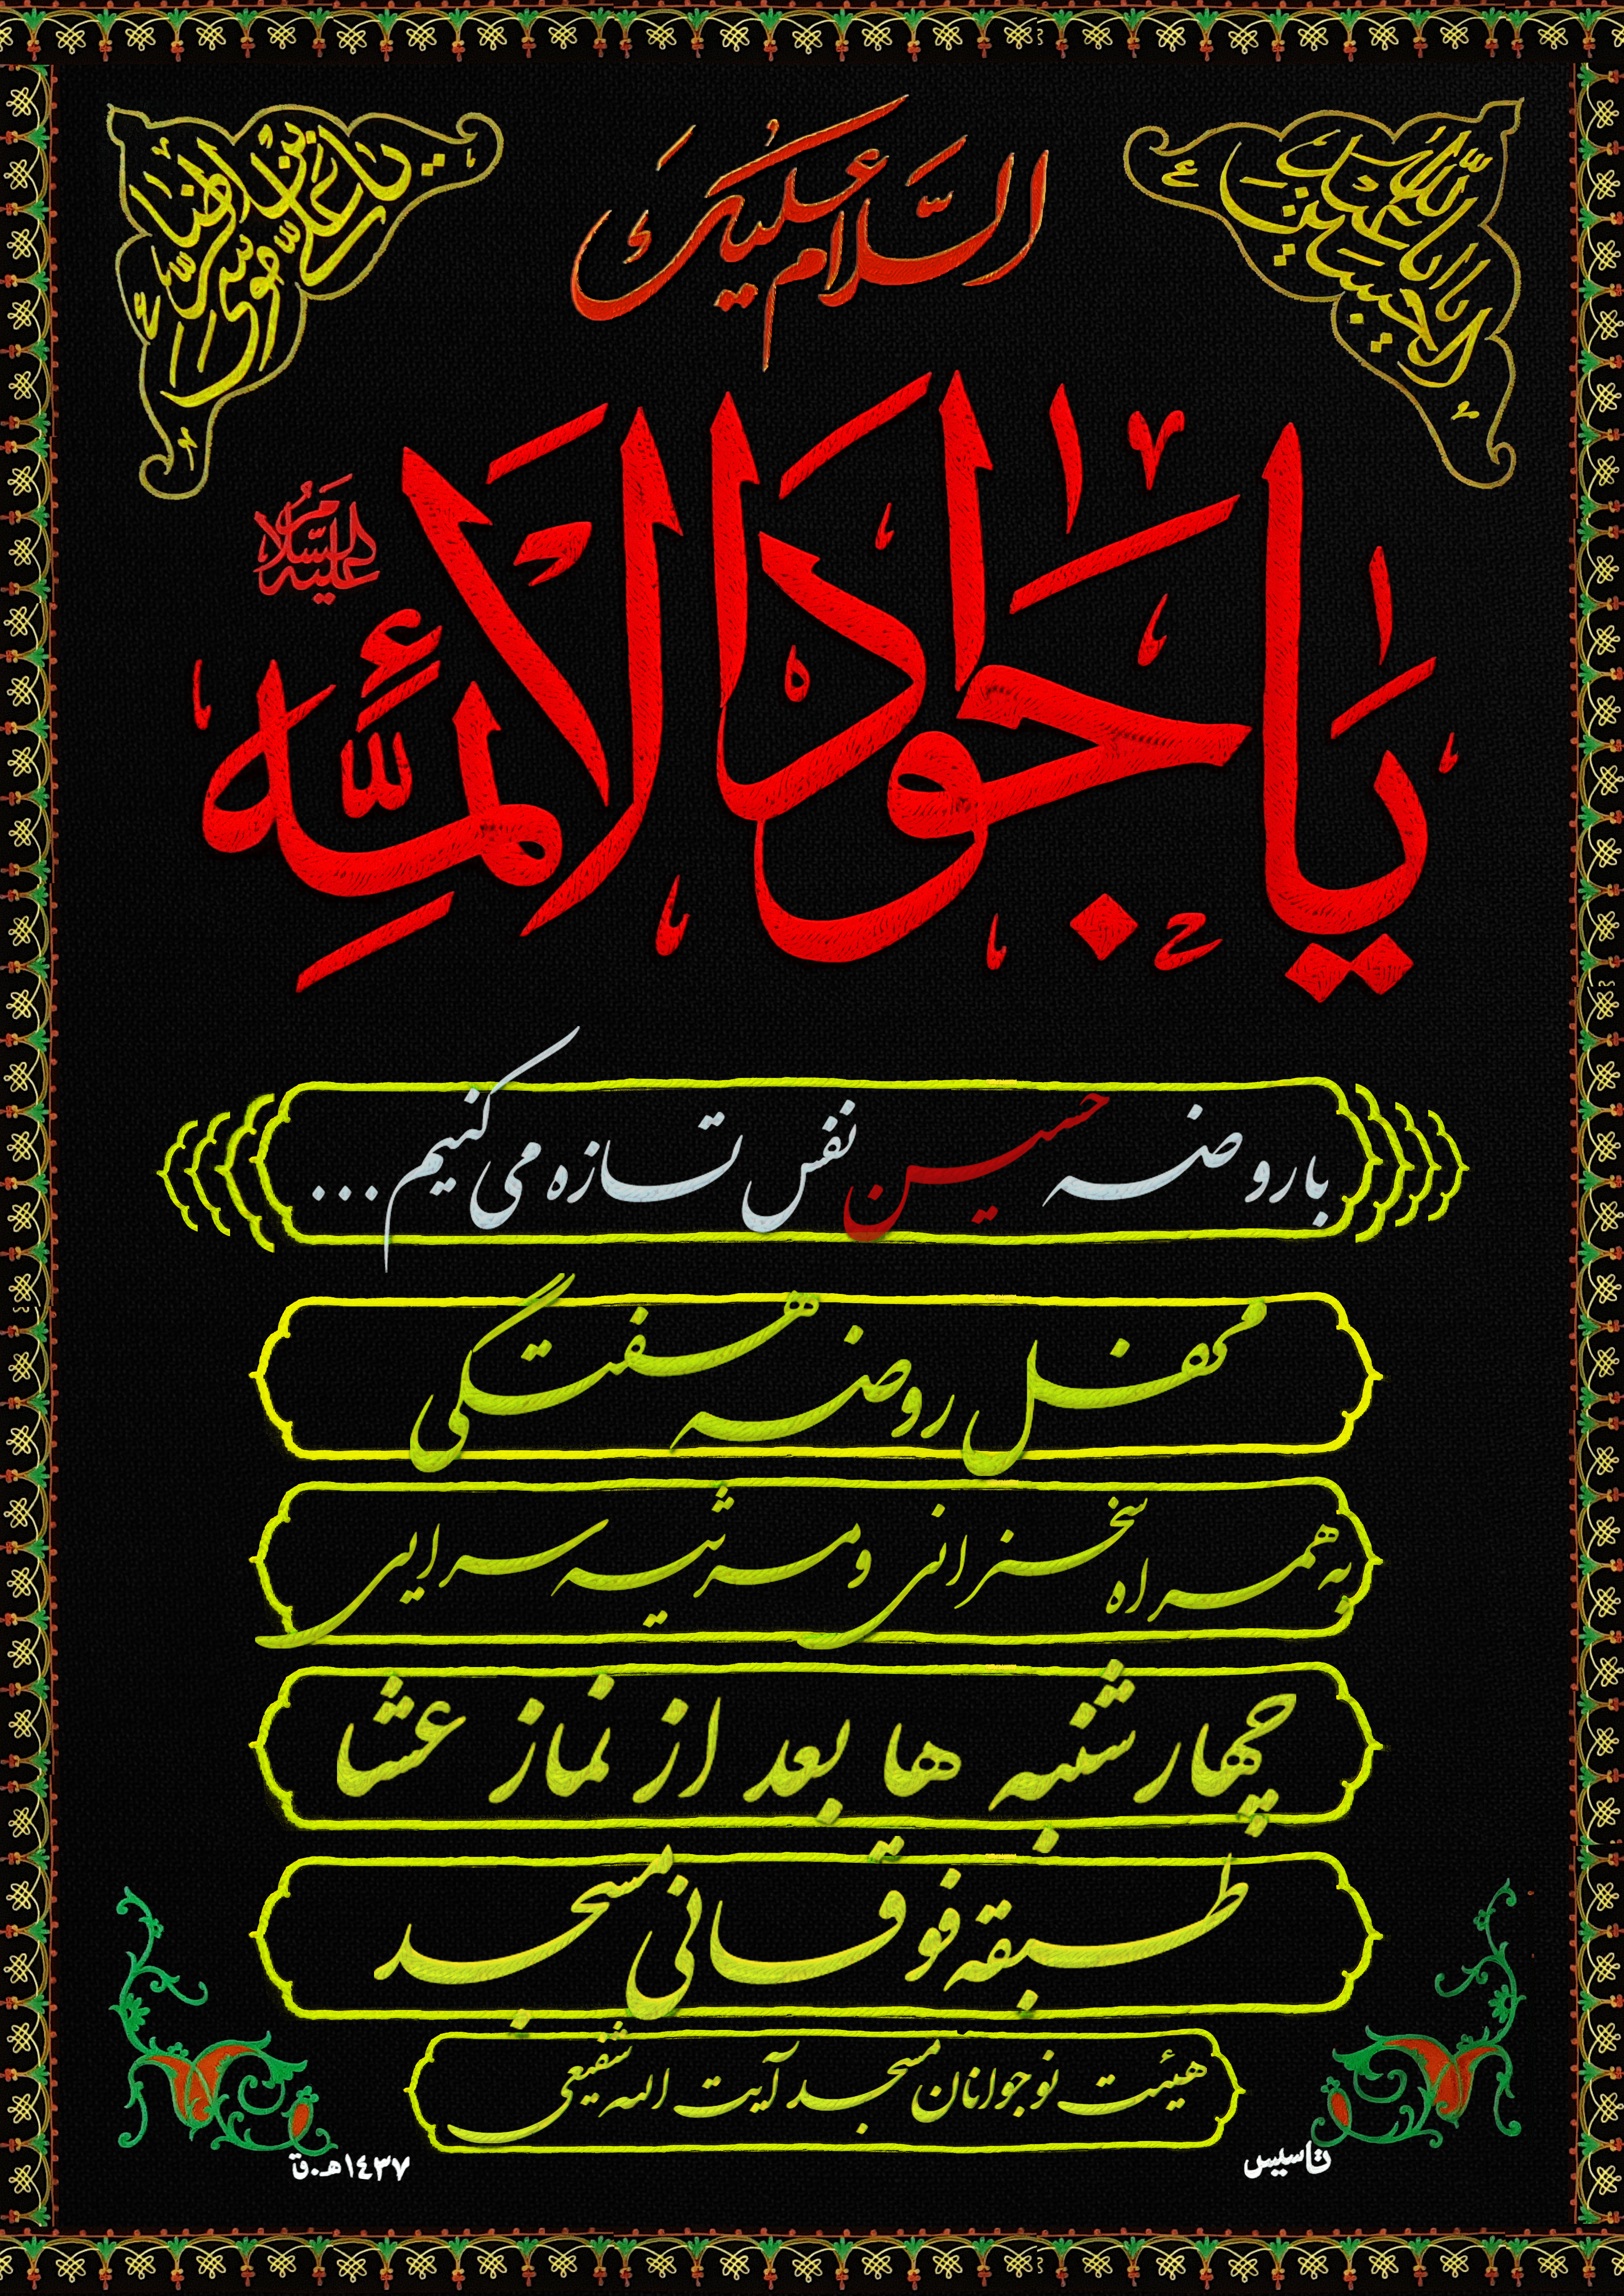 یا اباعبدالله الحسین
یا علی بن موسی الرضا
السلام علیک
یا جواد الائمه
علیه السلام
با روضه حسین نفس تازه می کنیم...
محفل روضه هفتگی
به همراه سخنرانی و مرثیه سرایی
چهارشنبه ها بعد از نماز عشا
طبقه فوقانی مسجد
هیئت نوجوانان مسجد آیت الله شفیعی
تاسیس ۱۴۳۷ه.ق